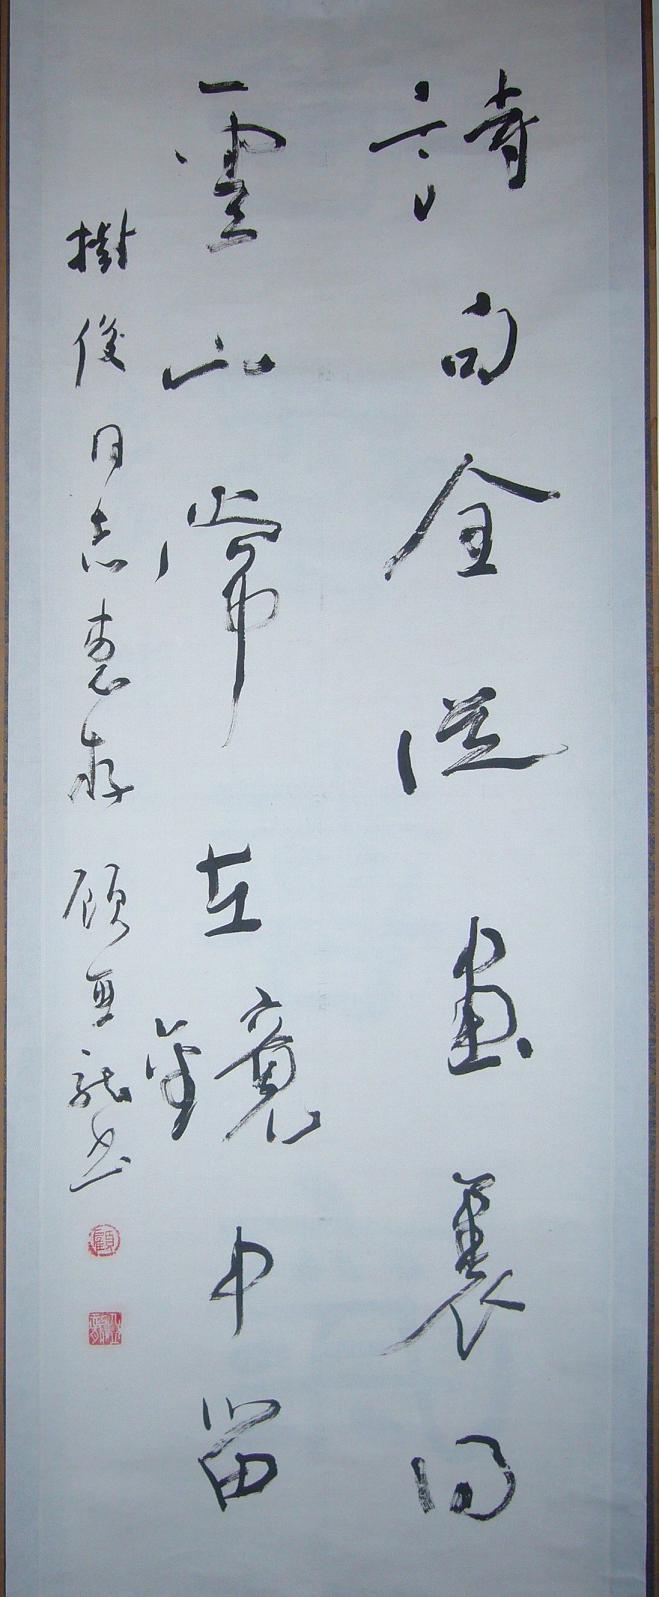 詩句全從畫裏得
雲山常在鏡中留
樹俊同志惠存 顾亚龙书